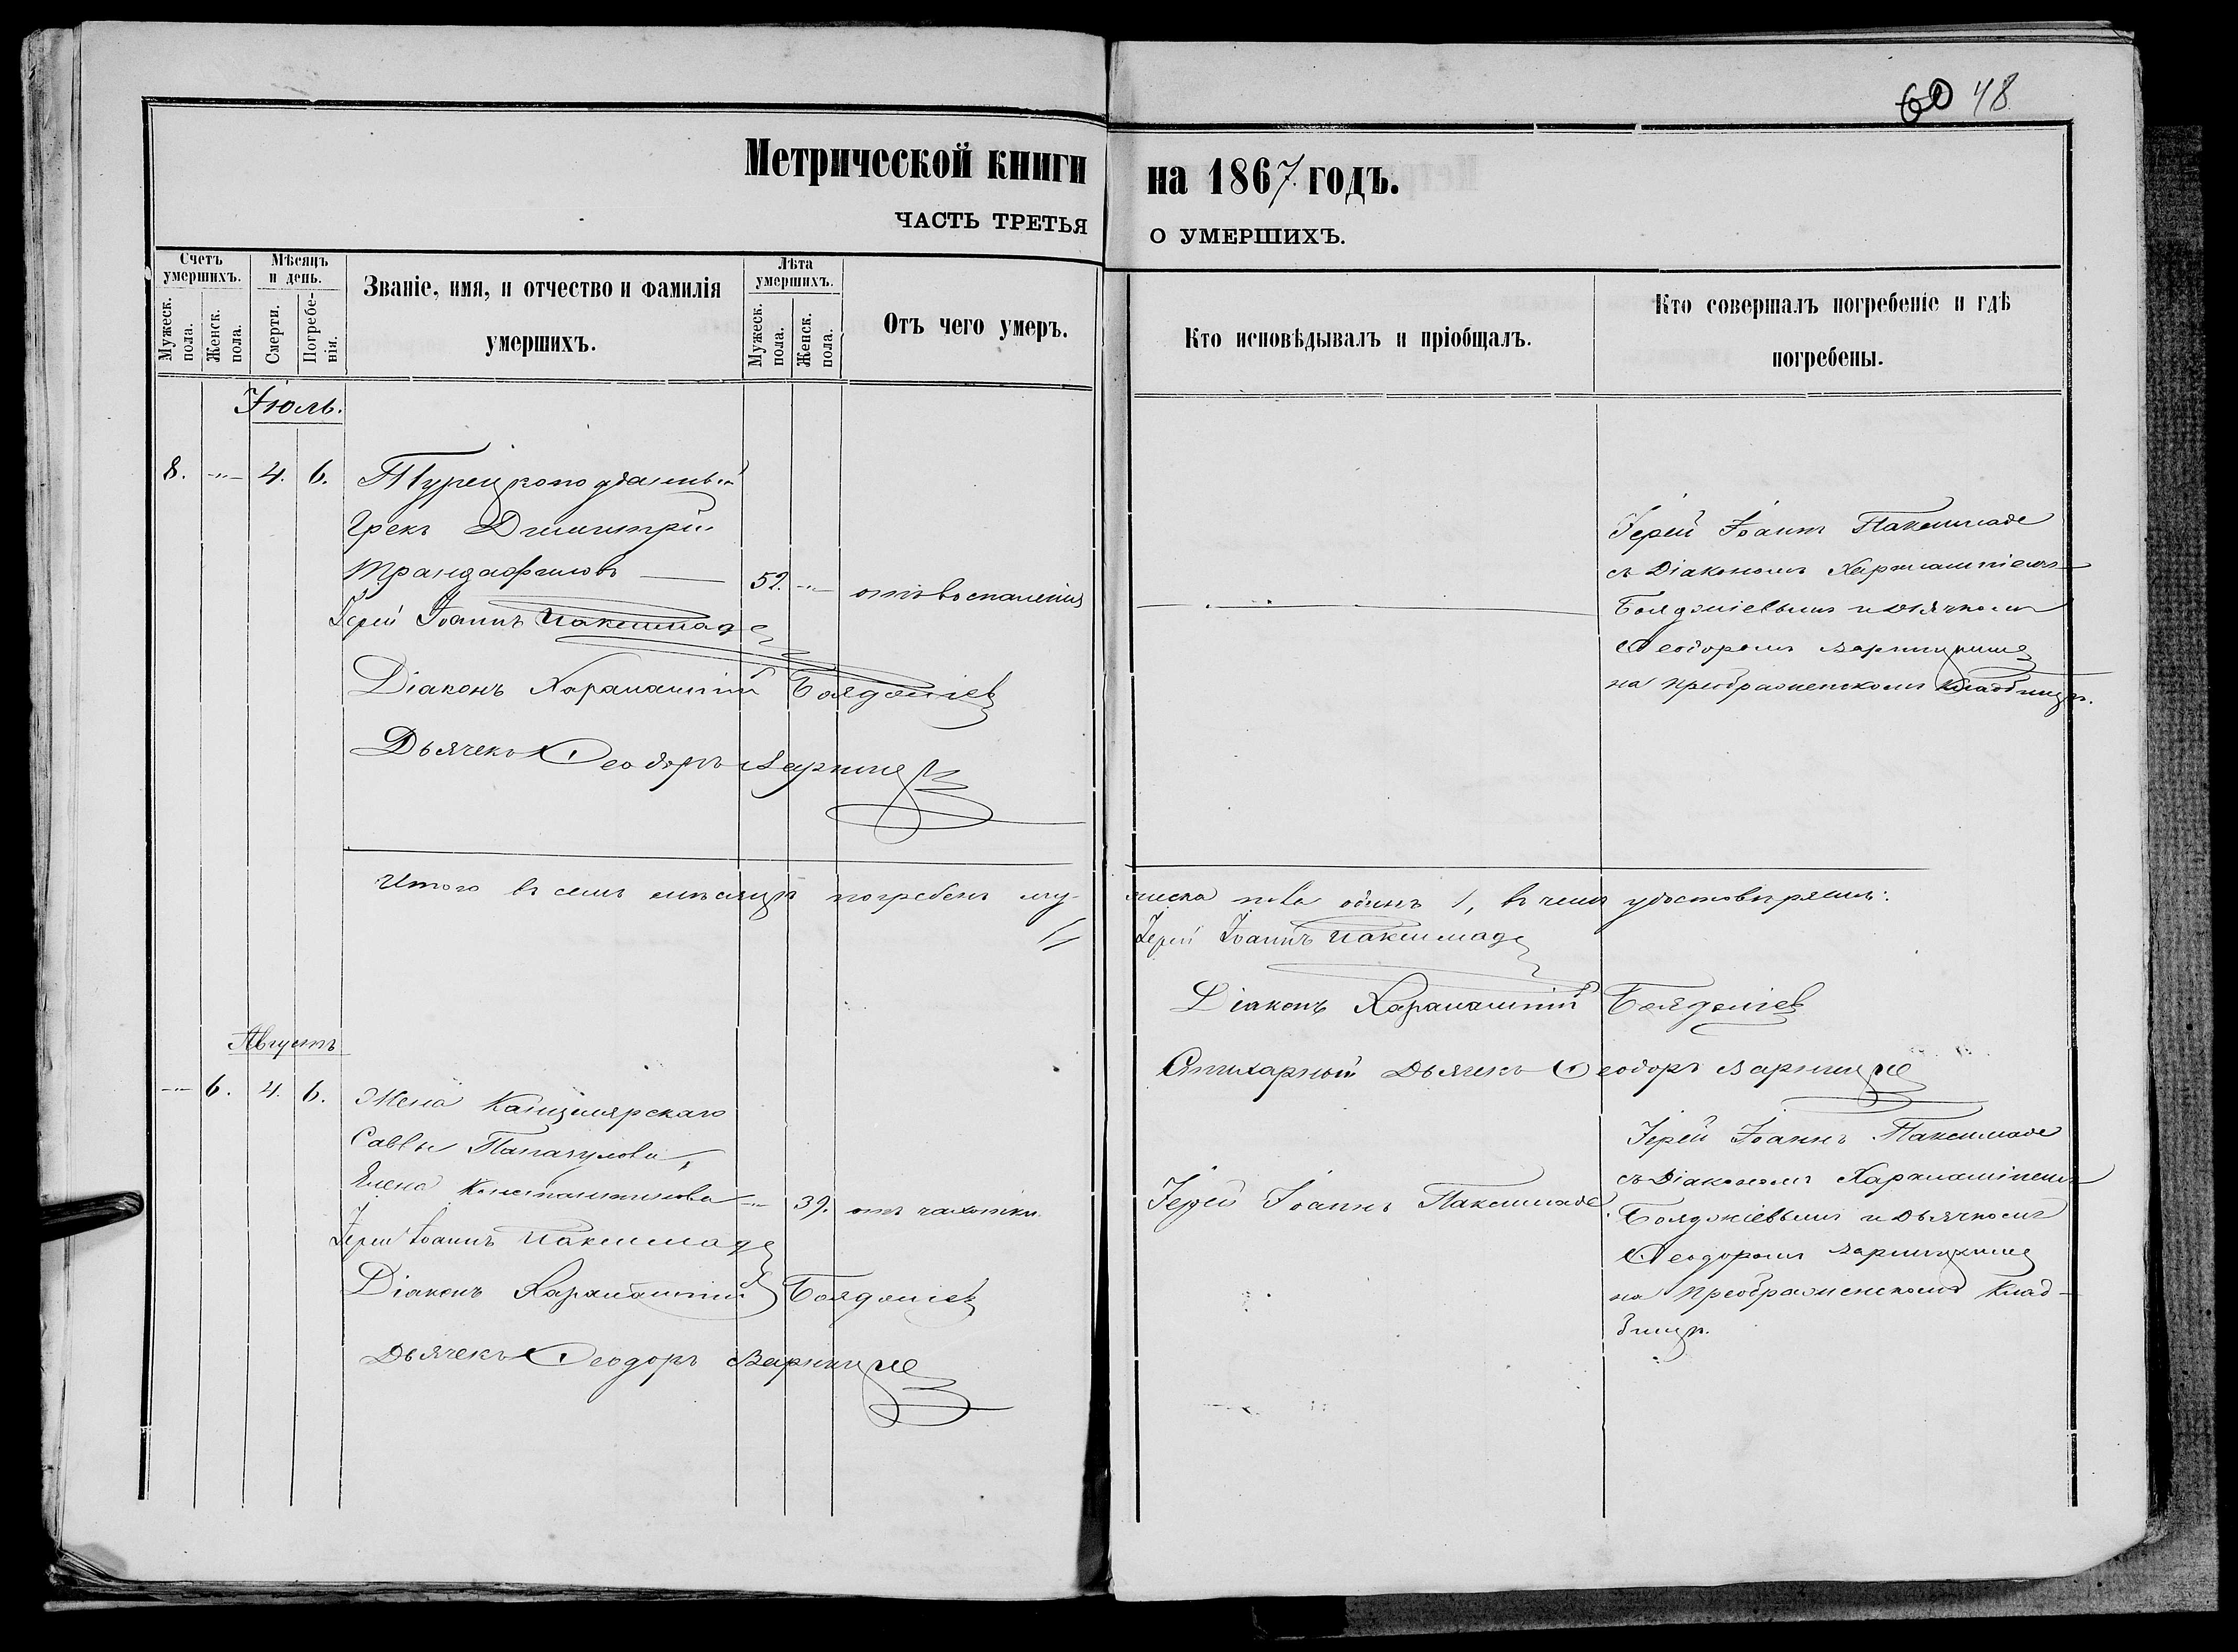 60 48
Метрической книги на 1867 годъ.
ЧАСТЬ ТРЕТЬЯ О УМЕРШИХЪ.
Счетъ умершихъ.
Мужеск. пола.
Женск. пола.
Мѣсяцъ и день.
Смерти.
Погребенія.
Званіе, имя, и отчество и фамилія умершихъ.
Лѣта умершихъ.
Мужеск. пола.
Женск. пола.
Отъ чего умеръ.
Кто исповѣдывалъ и пріобщалъ.
Кто совершалъ погребеніе и гдѣ погребены.
Іюль.
8. -"- 4. 6. Турецкоподанный
Грекъ Димитрій
Трандафиловъ — 52. -"- отъ воспаленія
Іерей Іоаннъ Паксимаде
Діаконъ Харалампій Бояджіев
Дьячекъ Ѳеодоръ Варницке
Іерей Іоаннъ Паксимаде
съ Діакономъ Харлампіемъ
Бояджіевымъ и Дьячкомъ
Ѳеодоромъ
на преображенскомъ кладбищѣ.
Итого въ семъ мѣсяцѣ погребенъ му-
жеска пола одинъ 1, въ чемъ удостовѣряемъ:
Іерей Іоаннъ Паксимаде
Діаконъ Харалампій Бояджіев
Стихарный Дьячекъ Ѳеодоръ Варницке
Августъ
-"- 6. 4. 6. Жена Канцелярскаго
Саввы
Елена Константинова -"- 39. отъ чахотки
Іерей Іоаннъ Паксимаде
Діаконъ Харалампій Бояджіев
Дьячекъ Ѳеодоръ Варницке
Іерей Іоаннъ Паксимаде.
Іерей Іоаннъ Паксимаде
съ Діакономъ Харалампіемъ
Бояджіевымъ и Дьячкомъ
Ѳеодоромъ
на преображенскомъ клад-
бищѣ.